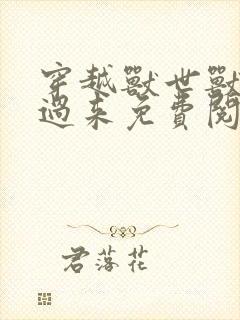 穿越獸世獸
過來免費閱
君落花